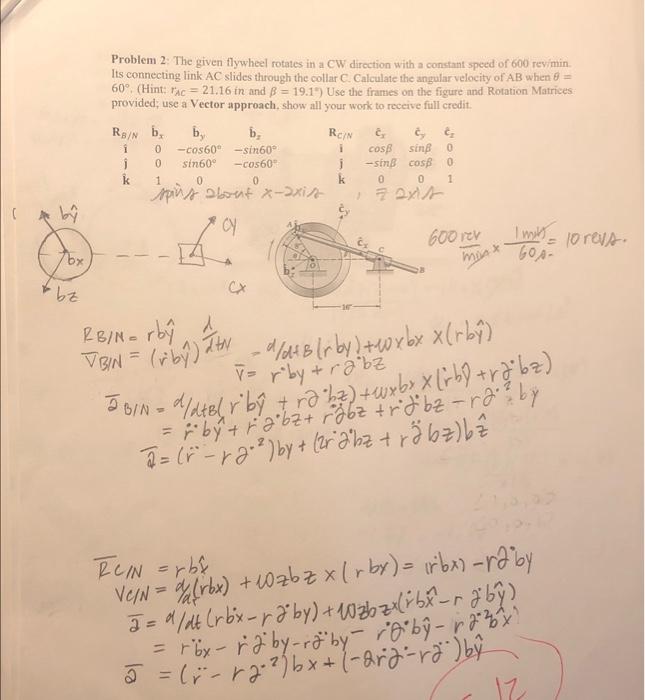 Problem 2: The given flywheel rotates in a CW direction with a constant speed of 600 rev/min.
Its connecting link AC slides through the collar C. Calculate the angular velocity of AB when θ =
60°. (Hint: r_AC = 21.16 in and β = 19.1°) Use the frames on the figure and Rotation Matrices
provided; use a Vector approach, show all your work to receive full credit.
R_B/N b̂x b̂y b̂z R_C/N ĉx ĉy ĉz
î 0 −cos60° −sin60° î cosβ sinβ 0
ĵ 0 sin60° −cos60° ĵ −sinβ cosβ 0
k̂ 1 0 0 k̂ 0 0 1
spins about x-axis, z axis
bŷ
cy
bx
cx
bz
ĉy
A
ĉx
C
B
16"
600 rev/min × 1 min/60 s = 10 rev/s.
RB/N = rbŷ
VB/N = (ṙbŷ) d/dtN = d/dtB(rby) + wxbx x(rbŷ)
v̄ = r˙by + r∂˙bz
āB/N = d/dtB(r˙bŷ + r∂˙bz) + wxbx x(ṙbŷ + r∂˙bz)
= r̈bŷ + ṙ∂˙bz + r∂̈bz + ṙ∂˙bz − r∂˙²bŷ
ā = (r̈ − r∂˙²)by + (2ṙ∂˙bz + r∂̈bz)bẑ
RC/N = rbx̂
VC/N = d/dt(rbx) + wzbz x(rbx) = (ṙbx) − r∂˙by
ā = d/dt(rb˙x − r∂˙by) + wzbz x(ṙbx̂ − r∂˙bŷ)
= r̈bx − ṙ∂˙by − r∂̈by − ṙ∂˙bŷ − r∂˙²bx̂
ā = (r̈ − r∂˙²)bx + (−2ṙ∂˙ − r∂̈)bŷ
12